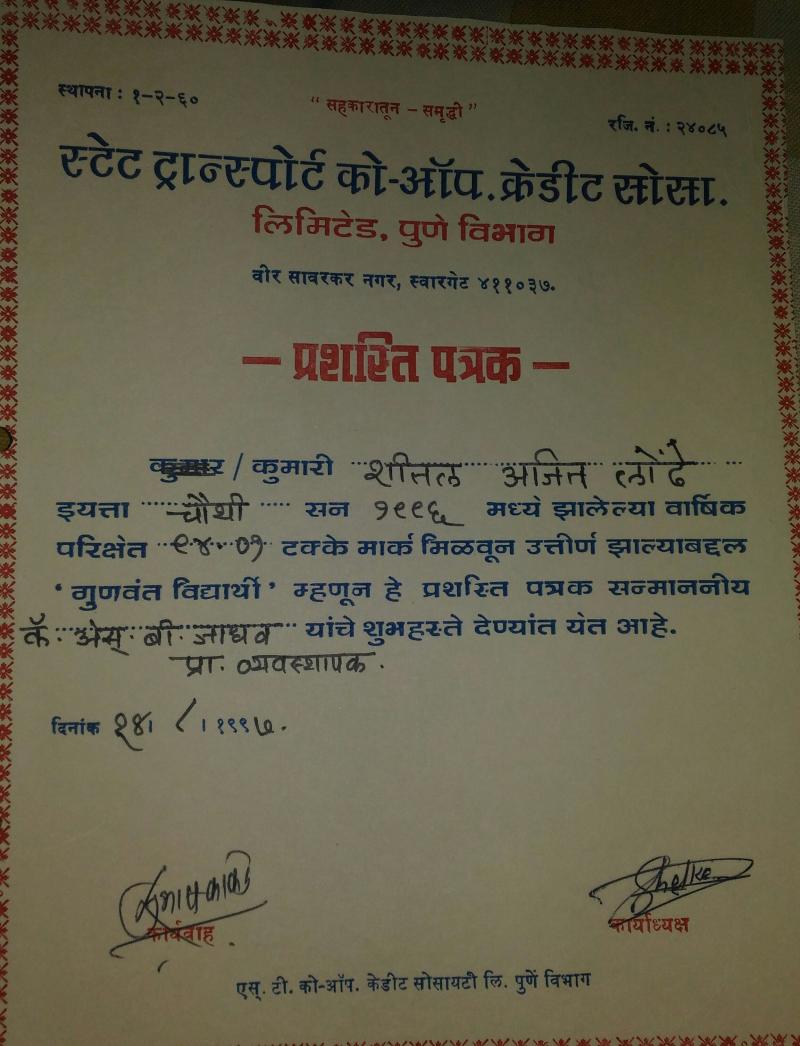 स्थापना : १-२-६०
" सहकारातून - समृद्धी "
रजि. नं. : २४०८५
स्टेट ट्रान्स्पोर्ट को-ऑप. क्रेडीट सोसा.
लिमिटेड, पुणे विभाग
वीर सावरकर नगर, स्वारगेट ४११०३७.
— प्रशस्ति पत्रक —
कुमार / कुमारी शीतल अजित लोंढे
इयत्ता चौथी सन १९९६ मध्ये झालेल्या वार्षिक
परिक्षेत ९४.०१ टक्के मार्क मिळवून उत्तीर्ण झाल्याबद्दल
' गुणवंत विद्यार्थी ' म्हणून हे प्रशस्ति पत्रक सन्माननीय
कॅ. अेस्. बी. जाधव यांचे शुभहस्ते देण्यांत येत आहे.
प्रा. व्यवस्थापक.
दिनांक २४। ८ । १९९७.
Shelke
कार्यवाह
कार्याध्यक्ष
एस्. टी. को-ऑप. केडीट सोसायटी लि. पुणें विभाग